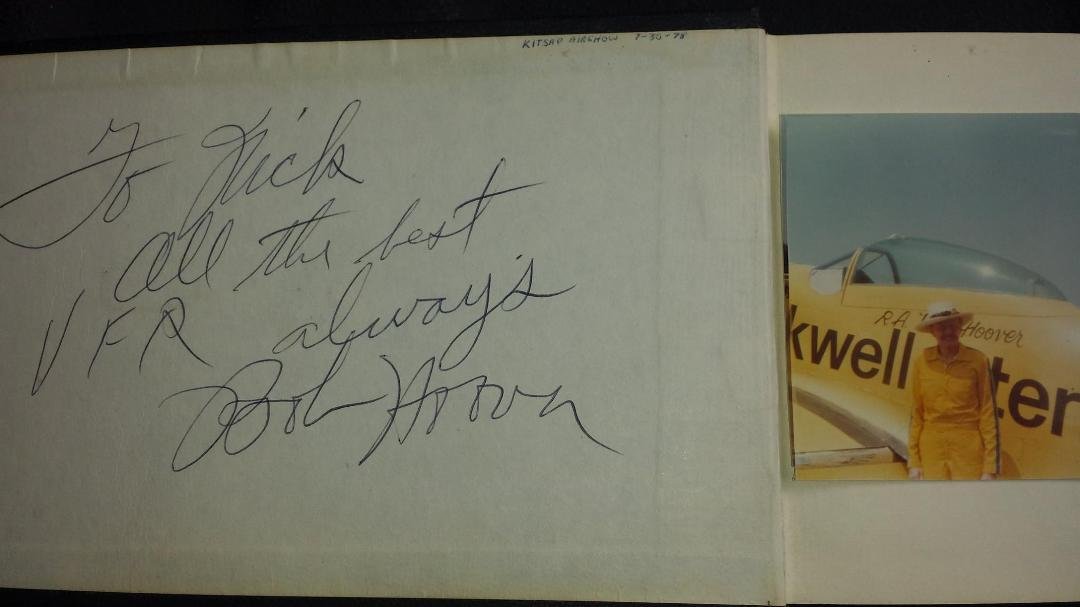 KITSAP AIRSHOW 7-30-78
To Nick
All the best
VFR always
Bob Hoover
R.A. Hoover
kwell
ter